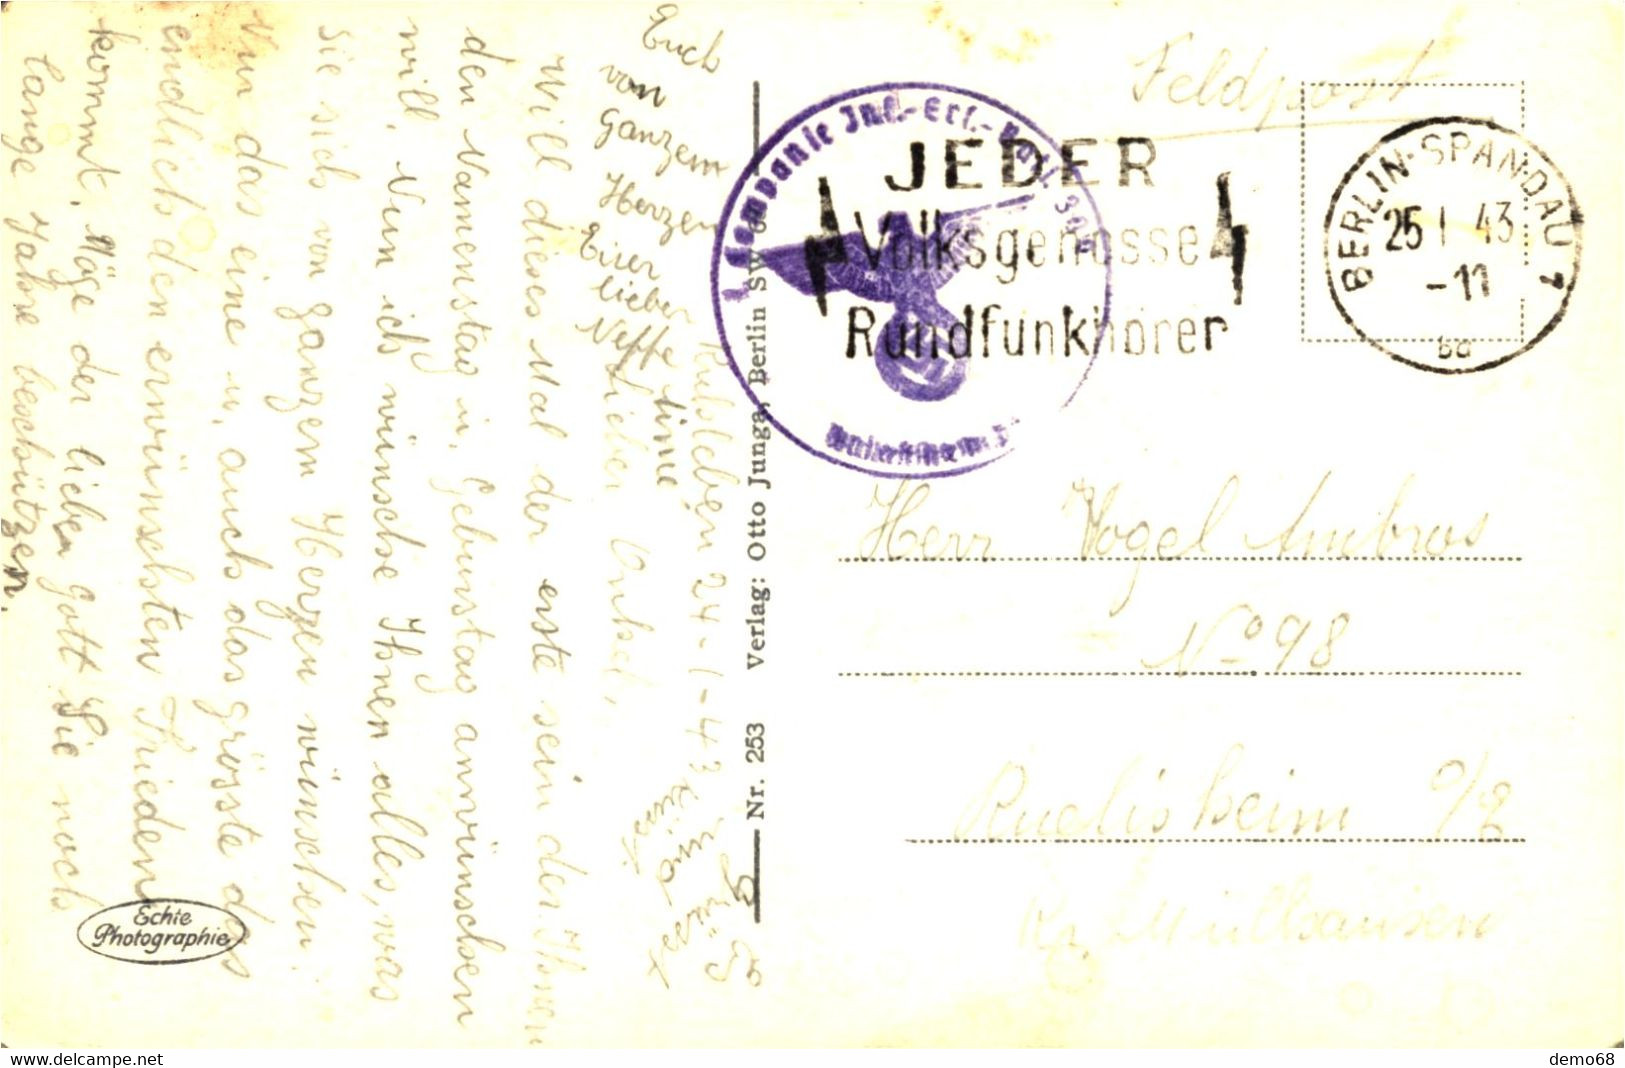 Feldpost
BERLIN-SPANDAU 7
25 1 43
-11
JEDER
Volksgenosse
Rundfunkhörer
Kompanie Inf.-Ers.-Batl.
Herr Vogel Ambros
No 98
Ruelisheim O/E
Kr. Mülhausen
Nr. 253 Verlag: Otto Junga, Berlin SW
24-1-43
Lieber Onkel,
Will dieses Mal der erste sein der Ihnen
den Namenstag u. Geburstag anwünschen
will. Nun ich wünsche Ihnen alles, was
Sie sich von ganzem Herzen wünschen.
Nur das eine u. auch das grösste das
endlich den erwünschten Frieden
kommt. Möge der lieber Gott Sie noch
lange Jahre beschützen.
Euch
von
Ganzem
Herzen
Eier
lieber
Neffe
Grüsse
Küsse
Echte
Photographie
www.delcampe.net
demo68